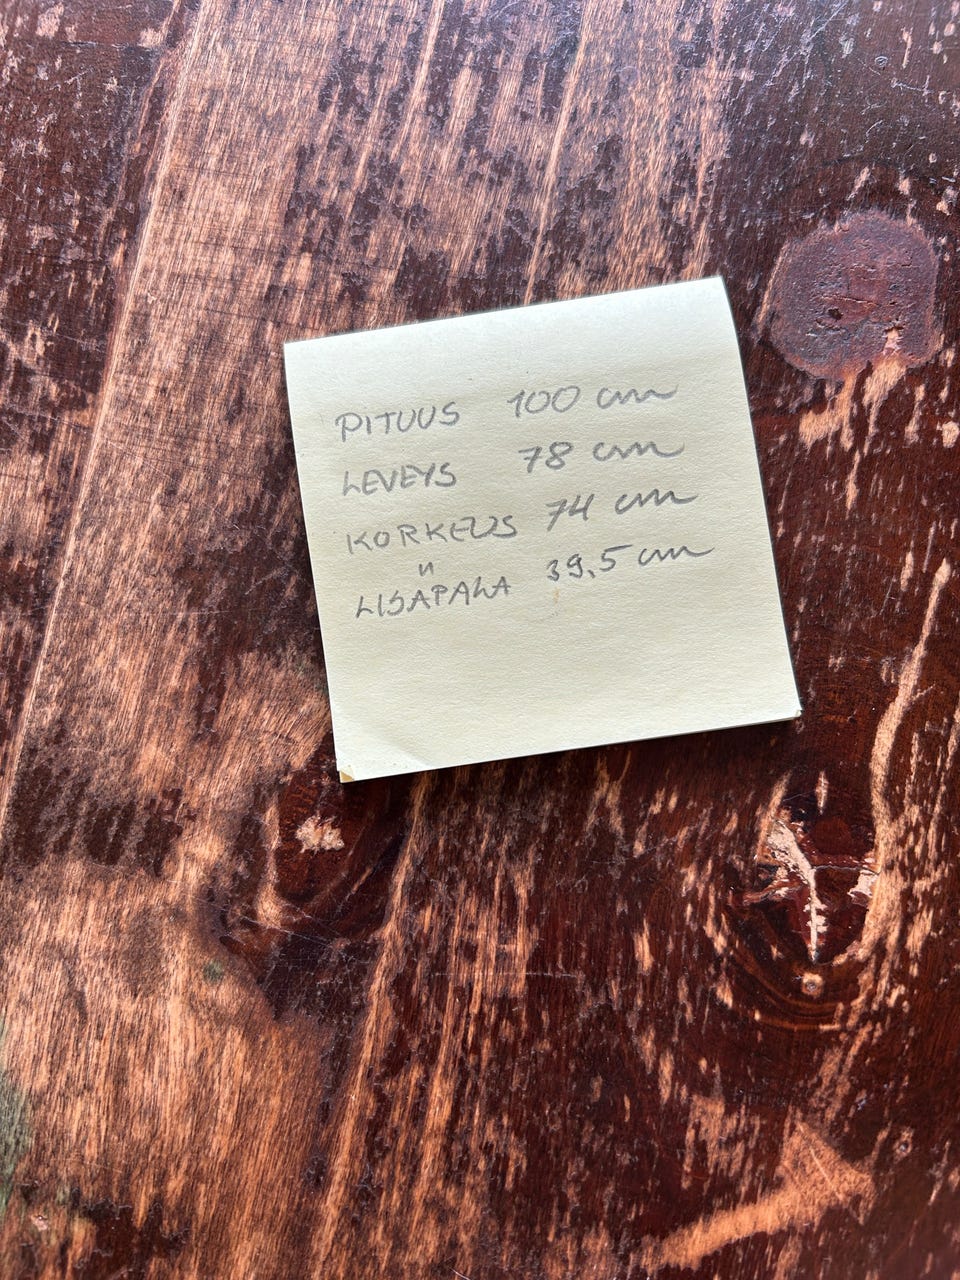 PITUUS 100 cm
LEVEYS 78 cm
KORKEUS 74 cm
LISÄPALA 39,5 cm